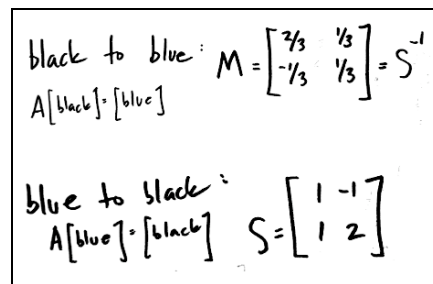 black to blue: M = [2/3 1/3; -1/3 1/3] = S^-1
A[black]=[blue]
blue to black:
A[blue]=[black] S = [1 -1; 1 2]